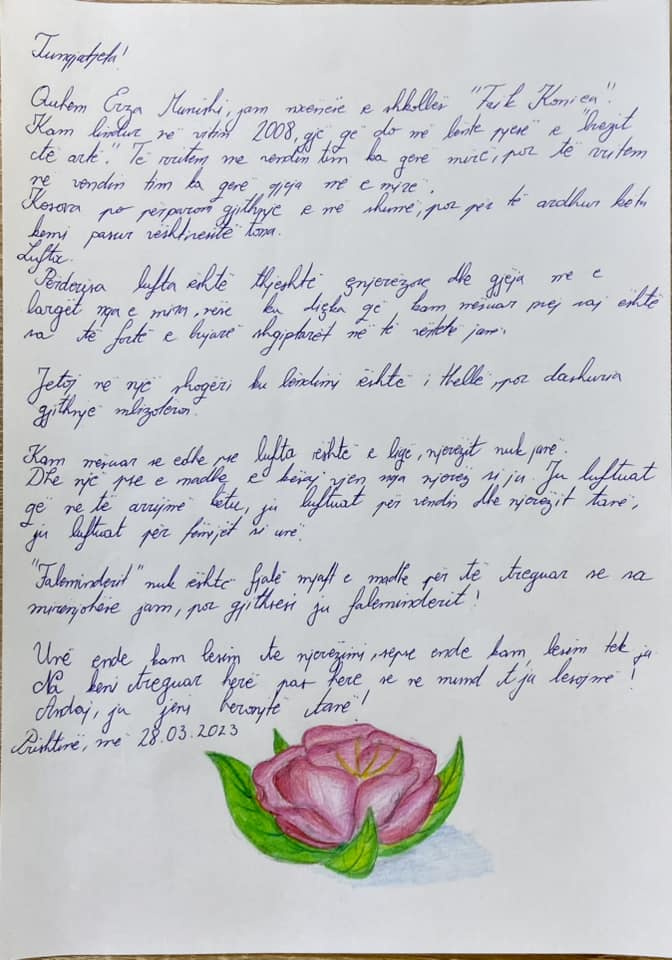 Tungjatjeta!
Quhem Erza Munishi, jam nxënëse e shkollës "Faik Konica".
Kam lindur në vitin 2008, gjë që do më bënte pjesë e "brezit
të artë". Të rritem me vendin tim ka qenë mirë, por të rritem
në vendin tim ka qenë gjëja më e mirë.
Kosova po përparon gjithnjë e më shumë, por për të ardhur këtu
kemi pasur vështirësitë tona.
Lufta.
Përderisa lufta është thjeshtë çnjerëzore dhe gjëja më e
largët nga e mira, nëse ka diçka që kam mësuar prej saj është
sa të fortë e bujarë shqiptarët në të vërtetë janë.
Jetoj në një shoqëri ku lëndimi është i thellë, por dashuria
gjithnjë mbizotëron.
Kam mësuar se edhe pse lufta është e ligë, njerëzit nuk janë.
Dhe një pse e madhe e kësaj vjen nga njerëz si ju. Ju luftuat
që ne të arrijmë këtu, ju luftuat për vendin dhe njerëzit tanë,
ju luftuat për fëmijët si unë.
"Faleminderit" nuk është fjalë mjaft e madhe për të treguar se sa
mirënjohëse jam, por gjithsesi ju faleminderit!
Unë ende kam besim te njerëzimi, sepse ende kam besim tek ju.
Na keni treguar herë pas here se ne mund t'ju besojmë!
Andaj, ju jeni heronjtë tanë!
Prishtinë, më 28.03.2023